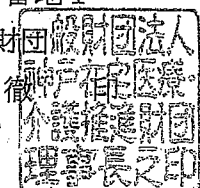 財団
一般財団法人
神戸在宅医療・
徹 印
介護推進財団
理事長之印